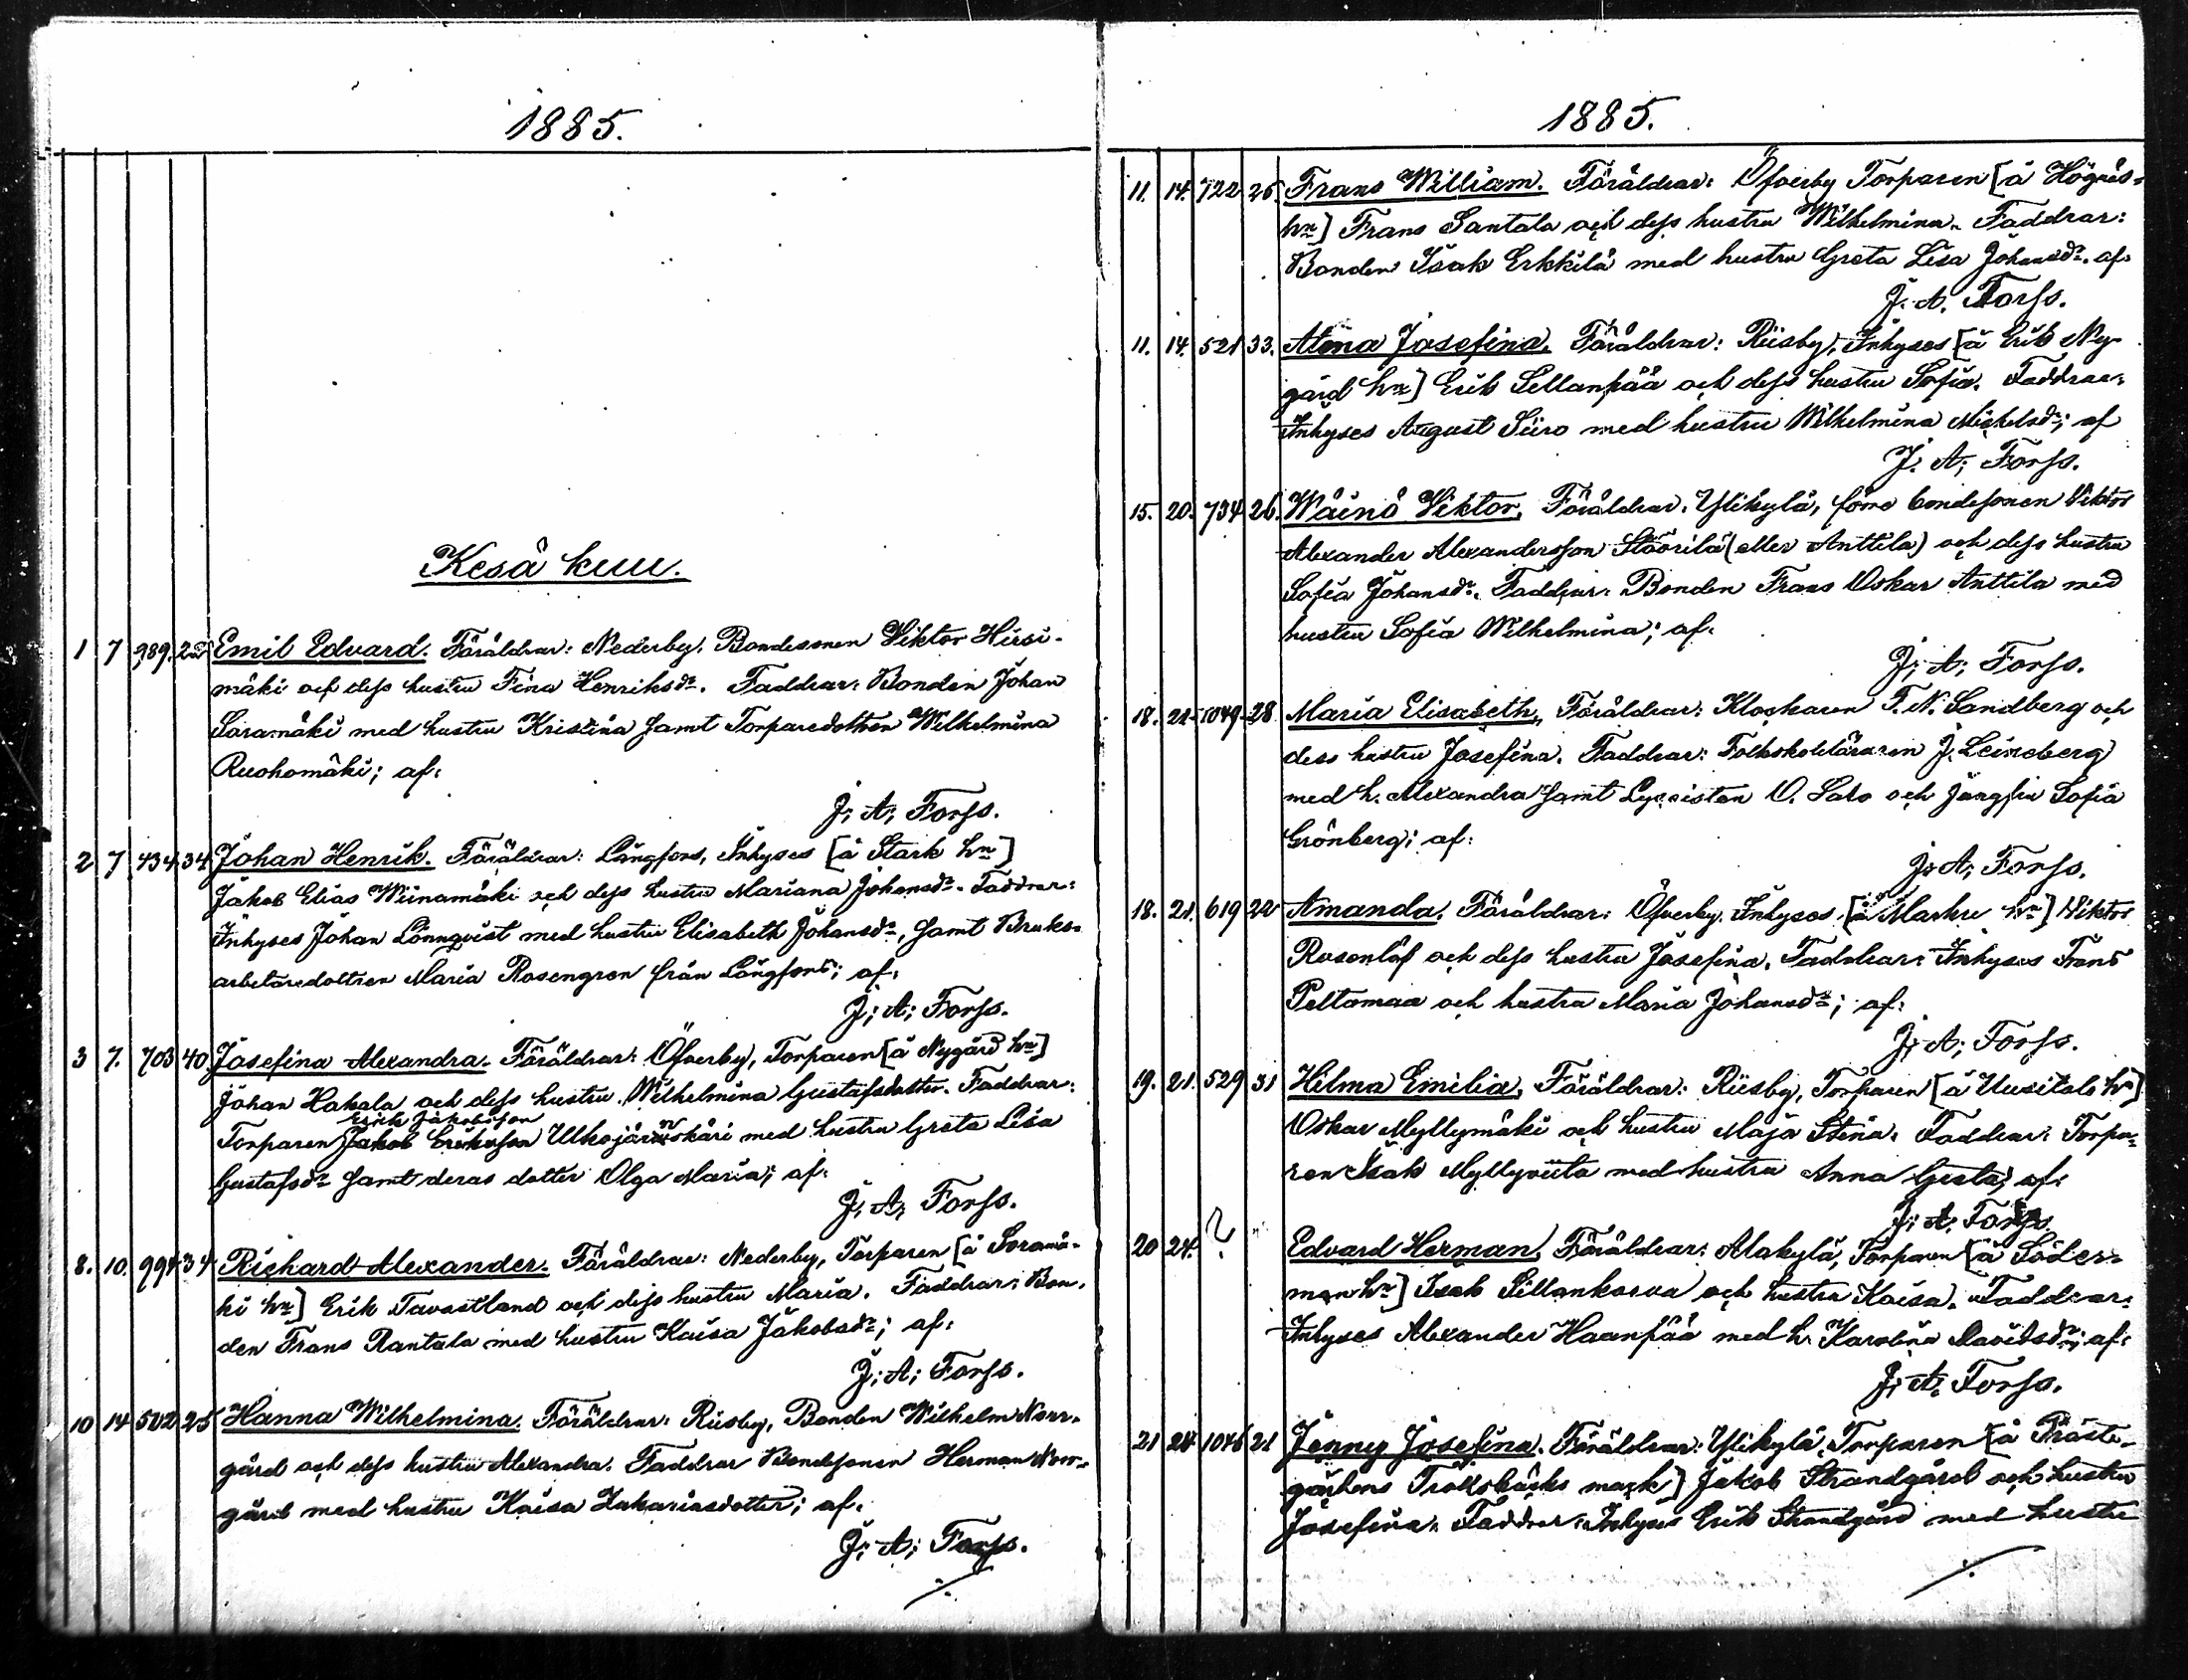 1885.
Kesä kuu.
1 7 989. 22 Emil Edvard. Föräldrar: Nederby. Bondesonen Viktor Hirsi-
mäki och dess hustru Fina Henriksdr. Faddrar: Bonden Johan
Soramäki med hustru Kristina samt Torparedottren Wilhelmina
Ruohomäki; af:
J; A; Forss.
2 7 434 34 Johan Henrik. Föräldrar: Långfors, Inhyses [å Stark hn]
Jakob Elias Wiinamäki och dess hustru Mariana Johansdr. Faddrar:
Inhyses Johan Lönnqvist med hustru Elisabeth Johansdr, samt Bruks-
arbetaredottren Maria Rosengren från Långfors; af:
J; A; Forss.
3 7. 703 40. Josefina Alexandra. Föräldrar: Öfverby, Torparen [å Nygård hn]
Johan Hakala och dess hustru Wilhelmina Gustafsdotter. Faddrar:
Erick Jakobsson
Torparen Jakob Eriksson med hustru Greta Lisa
Gustafsdr samt deras dotter Olga Maria; af:
J. A; Forss.
8. 10. 994 34 Richard Alexander. Föräldrar: Nederby, Torparen [å Soramä-
ki hn] Erik Tavastland och dess hustru Maria. Faddrar: Bon-
den Frans Rantala med hustru Kaisa Jakobsdr; af:
J; A; Forss.
10 14 502 25 Hanna Wilhelmina. Föräldrar: Riisby, Bonden Wilhelm Norr-
gård och dess hustru Alexandra. Faddrar Bondesonen Herman Norr-
gård med hustru Kaisa Zakariasdotter; af:
J; A; Forss.
./.
1885.
11. 14. 722 25. Frans William. Föräldrar: Öfverby Torparen [å Högnäs-
hn] Frans Santala och dess hustru Wilhelmina. Faddrar:
Bonden Isak Erkkilä med hustru Greta Lisa Johansdr. af:
J. A. Forss.
11. 14. 521 33. Alma Josefina. Föräldrar: Riisby, Inhyses [å Erik Ny-
gård hn] Erik Sellanpää och dess hustru Sofia. Faddrar:
Inhyses August Siiro med hustru Wilhelmina Michelsdr; af
J. A; Forss.
15. 20. 734 26. Wäinö Viktor. Föräldrar. Ylikylä, förre bondesonen Viktor
Alexander Alexandersson (eller Anttila) och dess hustru
Sofia Johansdr. Faddrar: Bonden Frans Oskar Anttila med
hustru Sofia Wilhelmina; af:
J; A; Forss.
18. 21. 1049 28 Maria Elisabeth. Föräldrar: Klockaren F. N. Sandberg och
dess hustru Josefina. Faddrar: Folkskoleläraren J. Leineberg
med h. Alexandra samt Lyceisten O. Salo och jungfru Sofia
Grönberg; af:
J; A; Forss.
18. 21. 619 22 Amanda. Föräldrar: Öfverby. Inhyses [å Marku hn] Viktor
Rosenlöf och dess hustru Josefina. Faddrar: Inhyses Frans
Peltomaa och hustru Maria Johansdr; af:
J; A; Forss.
19. 21. 529 31 Hilma Emilia. Föräldrar: Riisby, Torparen [å Uusitalo hn]
Oskar Myllymäki och hustru Maja Stina. Faddrar: Torpa-
ren Isak Myllyviita med hustru Anna Greta; af:
J; A; Forss.
20 24. ? Edvard Herman. Föräldrar: Alakylä, Torparen [å Söder-
man hn] Isak Sillankorva och hustru Kaisa. Faddrar:
Inhyses Alexander Haanpää med h. Karolina Davidsdr; af:
J; A; Forss.
21 24 1046 21 Jenny Josefina. Föräldrar: Ylikylä. Torparen [å Präste-
gårdens mark] Jakob Strandgård och hustru
Josefina. Faddrar: Inhyses Erik Strandgård med hustru
./.